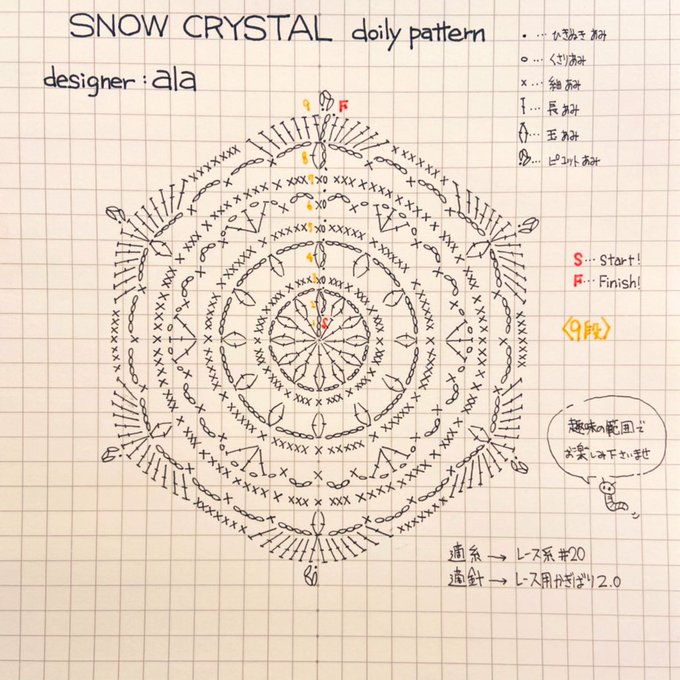 SNOW CRYSTAL doily pattern
designer : ala
・ … ひきぬきあみ
○ … くさりあみ
× … 細あみ
… 長あみ
… 玉あみ
… ピコットあみ
9 F
8
7
6
5
4
3
2
1
S
S … Start!
F … Finish!
〈9段〉
趣味の範囲で
お楽しみ下さいませ
適糸 → レース糸#20
適針 → レース用かぎばり2.0